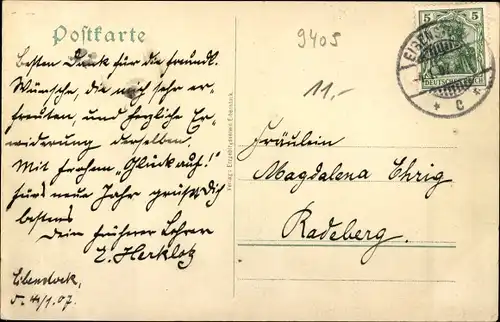 Postkarte
9405
5 5
DEUTSCHES REICH
EIBENSTOCK
* C *
11,-
Besten Dank für die freundl.
Wünsche, die mich sehr er-
freuten, und herzliche Er-
widerung derselben.
Mit frohem „Glück auf!"
fürs neue Jahr grüßt Dich
bestens
Dein früherer Lehrer
L. Herklotz
Eibenstock,
d. 4/1.07.
Fräulein
Magdalena Ehrig
Radeberg.